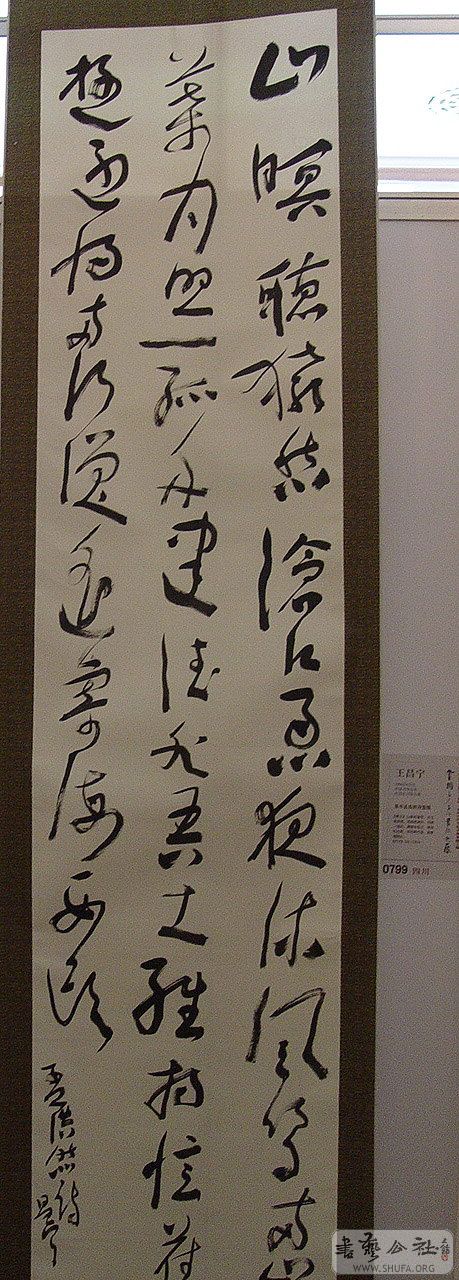 山暝聽猿愁滄江急夜流風鳴兩岸
葉月照一孤舟建德非吾土維揚憶舊
遊還將兩行淚遙寄海西頭
孟浩然詩 昌宁
王昌宁
0799 四川
書藝公社
WWW.SHUFA.ORG